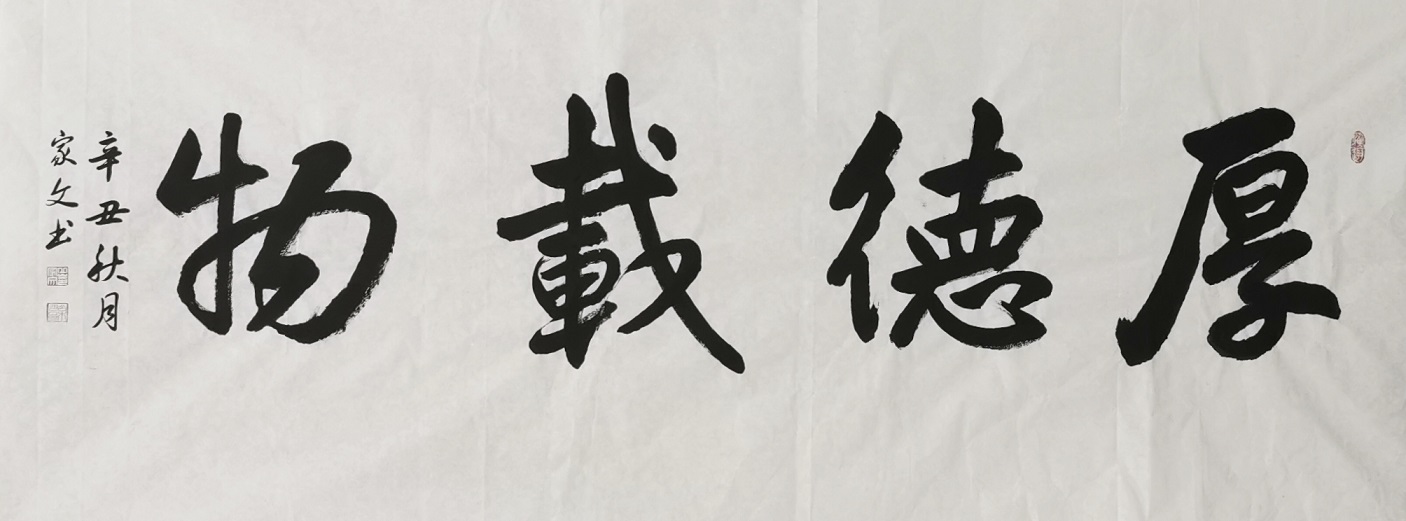 厚德載物
辛丑秋月
家文书